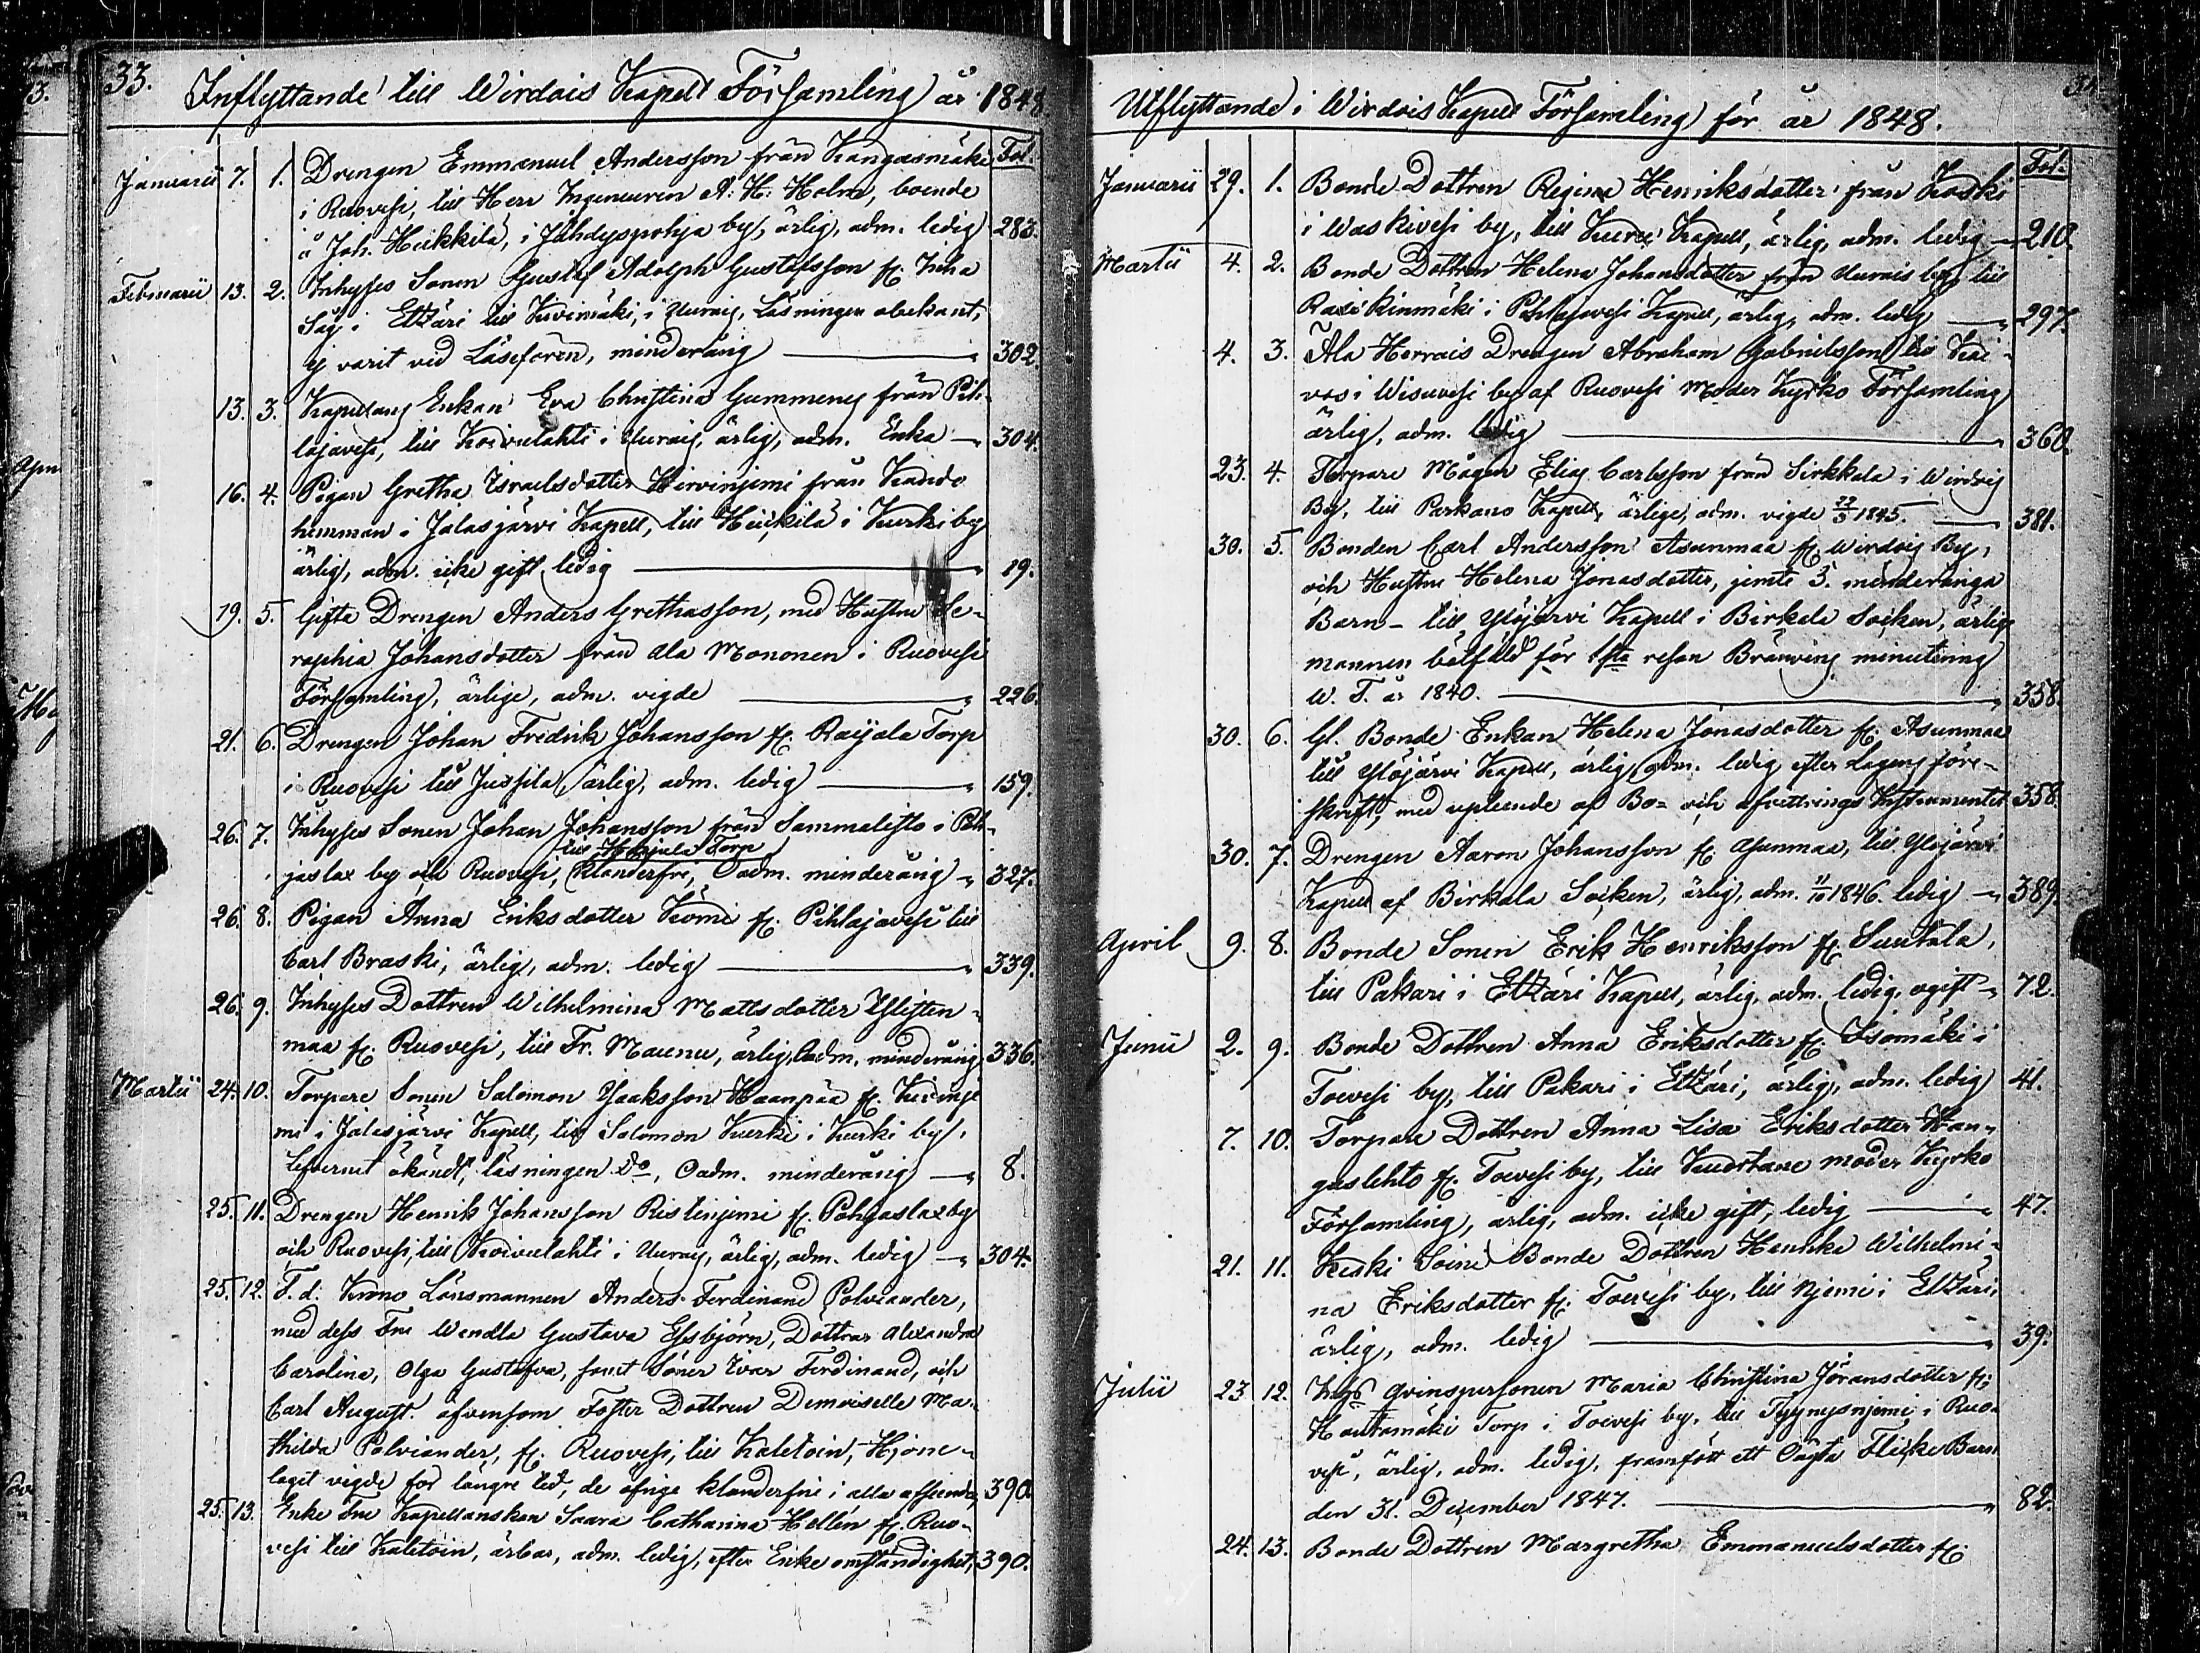 33.
Inflyttande till Wirdois Kapell Församling år 1848
Fol.
Januarii 7. 1. Drengen Emmanuel Andersson från Kangasmäki
i Ruovesi, till Herr Ingeneuren A. H. Holm, boende
å Joh. Heikkilä, i Jähdyspohja by, ärlig, adm. ledig 283.
Februarii 13. 2. Inhyses Sonen Gustaf Adolph Gustafsson fr. Inha
Såg i Etzäri till Kivimäki, i Uurais, Läsningen obekant,
ej varit ved Läsefören, minderårig 302.
13. 3. Kapellans Enkan Eva Christina Gummerus från Pih-
lajavesi, till Koivulahti i Uurais, ärlig, adm. Enka 304.
16. 4. Pigan Gretha Israelsdotter Hirvinjemi från Kando
hemman i Jalasjärvi Kapell, till Heikkilä i Kurki by
ärlig, adm. icke gift, ledig 19.
19. 5. Gifta Drengen Anders Grethasson, med Hustru Se-
raphia Johansdotter från Ala Mononen i Ruovesi
Församling, ärlige, adm. vigde 226.
21. 6. Drengen Johan Fredrik Johansson fr. Raijala Torp
i Ruovesi till Jussila, ärlig, adm. ledig 159.
26. 7. Inhyses Sonen Johan Johansson från Sammalisto i Poh-
till Torp
jaslax by och Ruovesi, klanderfri, Oadm. minderårig 327.
26. 8. Pigan Anna Eriksdotter Kömi fr. Pihlajavesi till
Carl Braski, ärlig, adm. ledig 339.
26. 9. Inhyses Dottren Wilhelmina Mattsdotter Ylisten-
maa fr. Ruovesi, till Fr. Maunu, ärlig, Oadm. minderårig 336.
Martii 24. 10. Torpare Sonen Salomon Isaksson Haanpää fr. Hirvinje
mi i Jalasjärvi Kapell, till Salomon Kurki i Kurki by,
lefvernet okändt, läsningen Do, Oadm. minderårig 8.
25. 11. Drengen Henrik Johansson Ristinjemi fr. Pohjaslax by
och Ruovesi, till Koivulahti i Uurais, ärlig, adm. ledig 304.
25. 12. F. d. Krono Länsmannen Anders Ferdinand Polviander,
med dess Fru Wendla Gustava Essbjörn, Döttrar Alexandra
Carolina, Olga Gustafva, samt Söner Ivar Ferdinand, och
Carl August. äfvensom Foster Dottren Demoiselle Ma-
thilda Polviander, fr. Ruovesi, till Kaletoin, Hjone-
laget vigde för längre tid, de öfrige klanderfrie i alla afseende 390.
25. 13. Enke Fru Kapellanskan Saara Catharina Hellén fr. Ruo-
vesi till Kaletoin, ärbar, adm. ledig, efter Enke omständighet, 390.
Utflyttande i Wirdois Kapell Församling för år 1848.
Fol.
Januarii 29. 1. Bonde Dottren Regina Henriksdotter från Koski
i Waskivesi by, till Kuru Kapell, ärlig, adm. ledig 210.
Martii 4. 2. Bonde Dottren Helena Johansdotter från Uurais by, till
Raiskinmäki i Pihlajavesi Kapell, ärlig, adm. ledig 297.
4. 3. Ala Herrais Drengen Abraham Gabrielsson till Kai-
vos i Wisuvesi by af Ruovesi Moder Kyrko Församling
ärlig, adm. ledig 360.
23. 4. Torpare Mågen Elias Carlsson från Sirkkala i Wirdois
By, till Parkano Kapell, ärlige, adm. vigde 1845. 381.
30. 5. Bonden Carl Andersson Asunmaa fr. Wirdois By,
och Hustru Helena Jonasdotter, jemte 3. minderåriga
Barn - till Ylöjärvi Kapell i Birkala Socken, ärlige
mannen bötfäld för 1sta resan Bränvins minutering
W. T. år 1840. 358.
30. 6. Gl. Bonde Enkan Helena Jonasdotter fr. Asunmaa
till Ylöjärvi Kapell, ärlig, adm. ledig efter Lagens före-
skrift, med upteende af Bo- och afvittrings Instrumentet 358.
30. 7. Drengen Aaron Johansson fr. Asunmaa, till Ylöjärvi
Kapell af Birkala Socken, ärlig, adm. 1846. ledig 389.
April 9. 8. Bonde Sonen Erik Henriksson fr. Suutala,
till Pakari i Etzäri Kapell, ärlig, adm. ledig, ogift 72.
Junii 2. 9. Bonde Dottren Anna Eriksdotter fr. Isomäki i
Toivesi by, till Pakari i Etzäri, ärlig, adm. ledig 41.
7. 10. Torpare Dottren Anna Lisa Eriksdotter Kan-
guslehto fr. Toivesi by, till Kuortane moder Kyrko
Församling, ärlig, adm. icke gift, ledig 47.
21. 11. Keski Soini Bonde Dottren Henrika Wilhelmi-
na Eriksdotter fr. Toivesi by, till Njemi i Etzäri,
ärlig, adm. ledig 39.
Julii 23. 12. Inhys qvinspersonen Maria Christina Jöransdotter fr.
Hautamäki Torp i Toivesi by, till Tyynysnjemi i Ruo-
vesi, ärlig, adm. ledig, framfött ett Oägta Flicke Barn
den 31. December 1847. 82.
24. 13. Bonde Dottren Margretha Emmanuelsdotter fr.